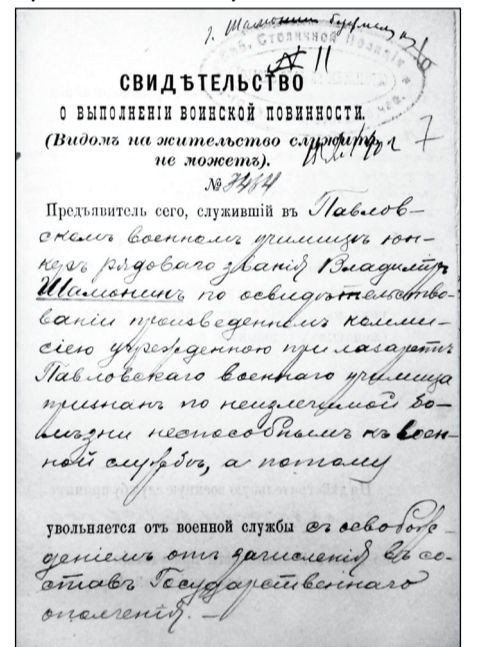 г. Шамонин
№ 11
Столичной
СВИДѢТЕЛЬСТВО
О ВЫПОЛНЕНІИ ВОИНСКОЙ ПОВИННОСТИ.
(Видомъ на жительство служить
не можетъ).
7
№ 7484
Предъявитель сего, служившій въ Павлов-
скомъ военномъ училищѣ юн-
керъ рядоваго званія Владиміръ
Шамонинъ по освидѣтельство-
ваніи произведенномъ коммис-
сіею учрежденною при лазаретѣ
Павловскаго военнаго училища
признанъ по неизлечимой бо-
лѣзни неспособнымъ къ воен-
ной службѣ, а потому
увольняется отъ военной службы съ освобож-
деніемъ отъ зачисленія въ со-
ставъ Государственнаго
ополченія. —